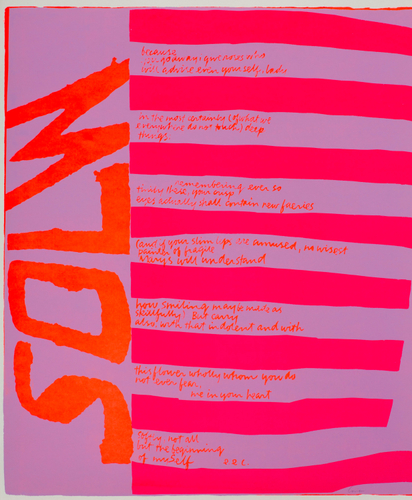 SOLW
because
you go away i give roses who
will advise even yourself, lady
in the most certainly (of what we
everywhere do not touch) deep
things;
remembering ever so
your crisp
eyes actually shall contain new faeries
(and if your slim lips are amused, no wisest
painter of fragile
Marys will understand
how smiling may be made as
skilfully.) But carry
also, with that indolent and with
this flower wholly whom you do
not ever fear,
me in your heart
softly; not all
but the beginning
of mseself e.e.c.